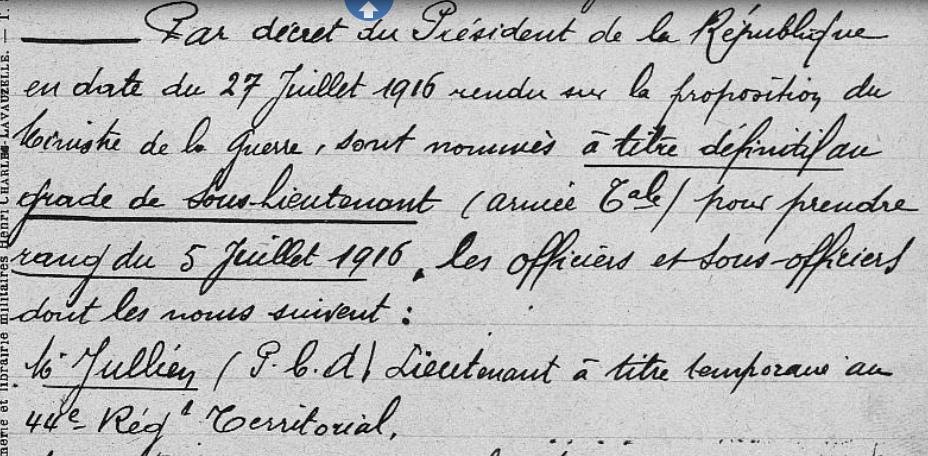 Par décret du Président de la République
en date du 27 Juillet 1916 rendu sur la proposition du
Ministre de la Guerre, sont nommés à titre définitif au
grade de Sous-Lieutenant (armée Tale) pour prendre
rang du 5 Juillet 1916, les officiers et sous-officiers
dont les noms suivent :
M. Jullien (P. C. A) Lieutenant à titre temporaire au
44e Régt Territorial.
merie et librairie militaires Henri CHARLES-LAVAUZELLE. —